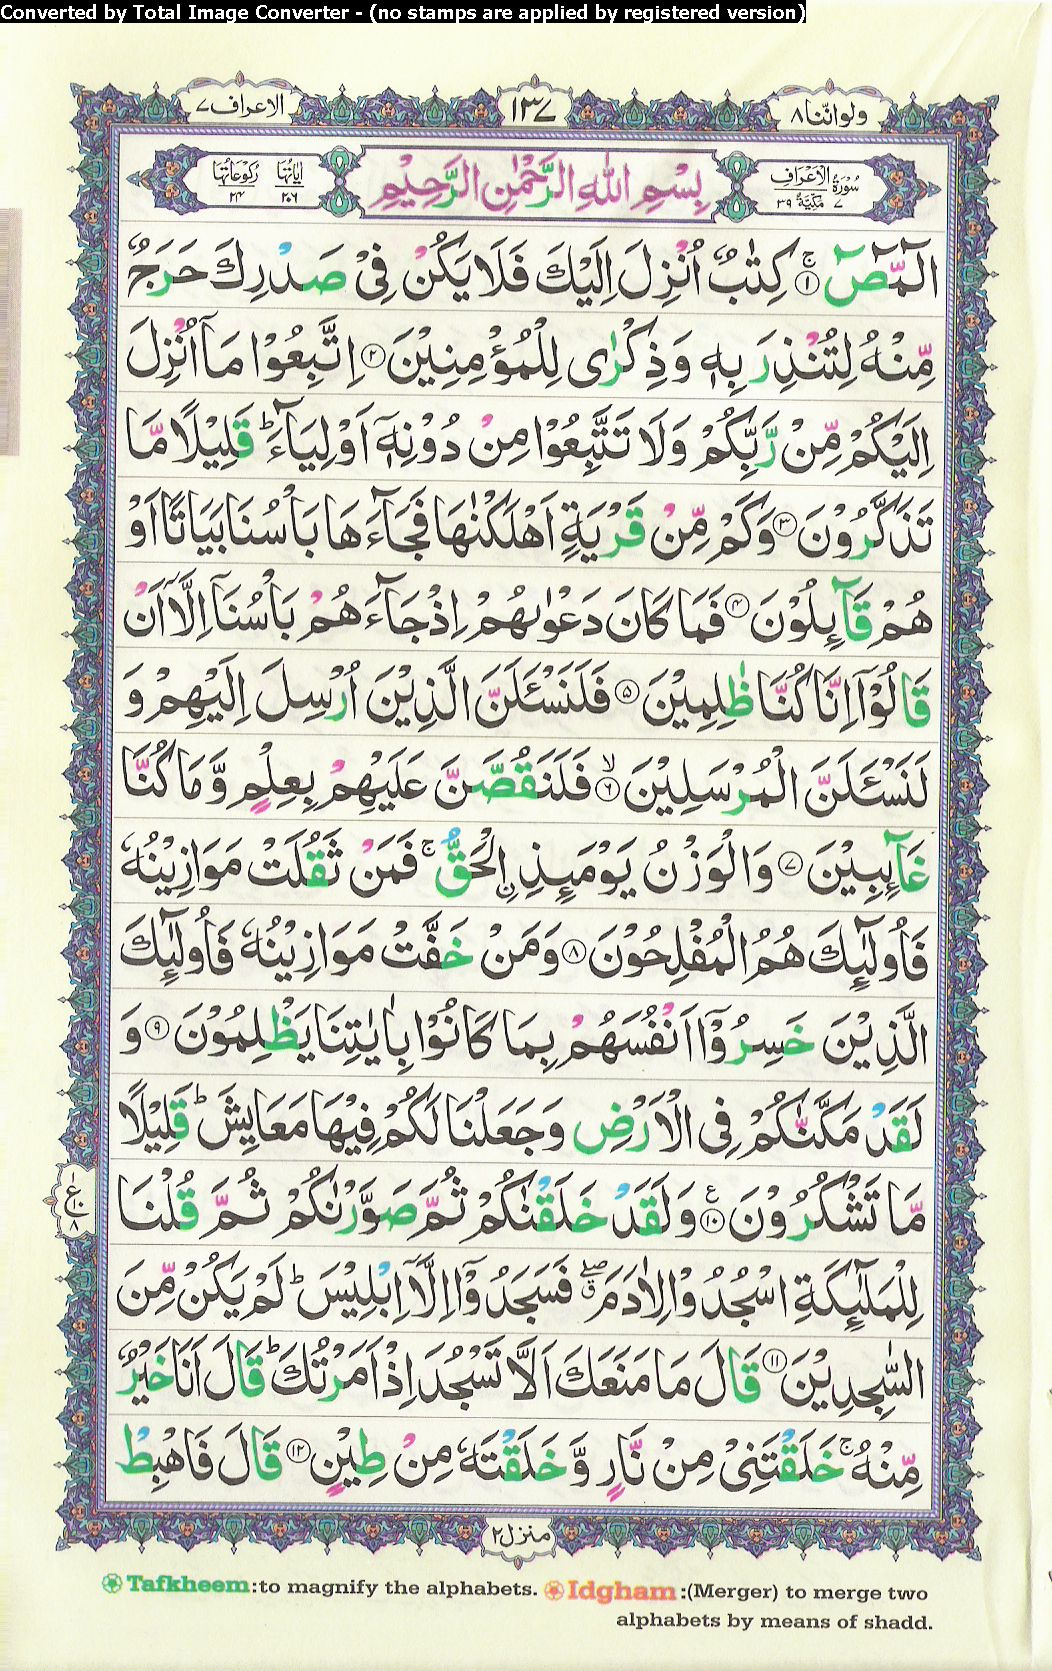 Converted by Total Image Converter - (no stamps are applied by registered version)
ولواننا ٨
١٣٧
الاعراف ٧
سُوْرَةُ الْاَعْرَافِ
٧ مَكِّيَّةٌ ٣٩
بِسْمِ اللّٰهِ الرَّحْمٰنِ الرَّحِيْمِ
اٰيَاتُهَا ٢٠٦
رُكُوْعَاتُهَا ٢٤
الٓمّٓصٓ ۚ‏﴿١﴾ كِتٰبٌ اُنْزِلَ اِلَيْكَ فَلَا يَكُنْ فِىْ صَدْرِكَ حَرَجٌ
مِّنْهُ لِتُنْذِرَ بِهٖ وَذِكْرٰى لِلْمُؤْمِنِيْنَ ﴿٢﴾ اِتَّبِعُوْا مَاۤ اُنْزِلَ
اِلَيْكُمْ مِّنْ رَّبِّكُمْ وَلَا تَتَّبِعُوْا مِنْ دُوْنِهٖۤ اَوْلِيَآءَ ؕ قَلِيْلًا مَّا
تَذَكَّرُوْنَ ﴿٣﴾ وَكَمْ مِّنْ قَرْيَةٍ اَهْلَكْنٰهَا فَجَآءَهَا بَاْسُنَا بَيَاتًا اَوْ
هُمْ قَآئِلُوْنَ ﴿٤﴾ فَمَا كَانَ دَعْوٰىهُمْ اِذْ جَآءَهُمْ بَاْسُنَاۤ اِلَّاۤ اَنْ
قَالُوْۤا اِنَّا كُنَّا ظٰلِمِيْنَ ﴿٥﴾ فَلَنَسْـَٔلَنَّ الَّذِيْنَ اُرْسِلَ اِلَيْهِمْ وَ
لَنَسْـَٔلَنَّ الْمُرْسَلِيْنَ ۙ﴿٦﴾ فَلَنَقُصَّنَّ عَلَيْهِمْ بِعِلْمٍ وَّمَا كُنَّا
غَآئِبِيْنَ ﴿٧﴾ وَالْوَزْنُ يَوْمَئِذِ ۨالْحَقُّ ۚ فَمَنْ ثَقُلَتْ مَوَازِيْنُهٗ
فَاُولٰٓئِكَ هُمُ الْمُفْلِحُوْنَ ﴿٨﴾ وَمَنْ خَفَّتْ مَوَازِيْنُهٗ فَاُولٰٓئِكَ
الَّذِيْنَ خَسِرُوْۤا اَنْفُسَهُمْ بِمَا كَانُوْا بِاٰيٰتِنَا يَظْلِمُوْنَ ﴿٩﴾ وَ
لَقَدْ مَكَّنّٰكُمْ فِى الْاَرْضِ وَجَعَلْنَا لَكُمْ فِيْهَا مَعَايِشَ ؕ قَلِيْلًا
مَّا تَشْكُرُوْنَ ﴿١٠﴾ ع وَلَقَدْ خَلَقْنٰكُمْ ثُمَّ صَوَّرْنٰكُمْ ثُمَّ قُلْنَا
ع ١٠ ٨
لِلْمَلٰٓئِكَةِ اسْجُدُوْا لِاٰدَمَ ۖۗ فَسَجَدُوْۤا اِلَّاۤ اِبْلِيْسَ ؕ لَمْ يَكُنْ مِّنَ
السّٰجِدِيْنَ ﴿١١﴾ قَالَ مَا مَنَعَكَ اَلَّا تَسْجُدَ اِذْ اَمَرْتُكَ ؕ قَالَ اَنَا خَيْرٌ
مِّنْهُ ۚ خَلَقْتَنِىْ مِنْ نَّارٍ وَّخَلَقْتَهٗ مِنْ طِيْنٍ ﴿١٢﴾ قَالَ فَاهْبِطْ
منزل ٢
Tafkheem:to magnify the alphabets. Idgham:(Merger) to merge two
alphabets by means of shadd.